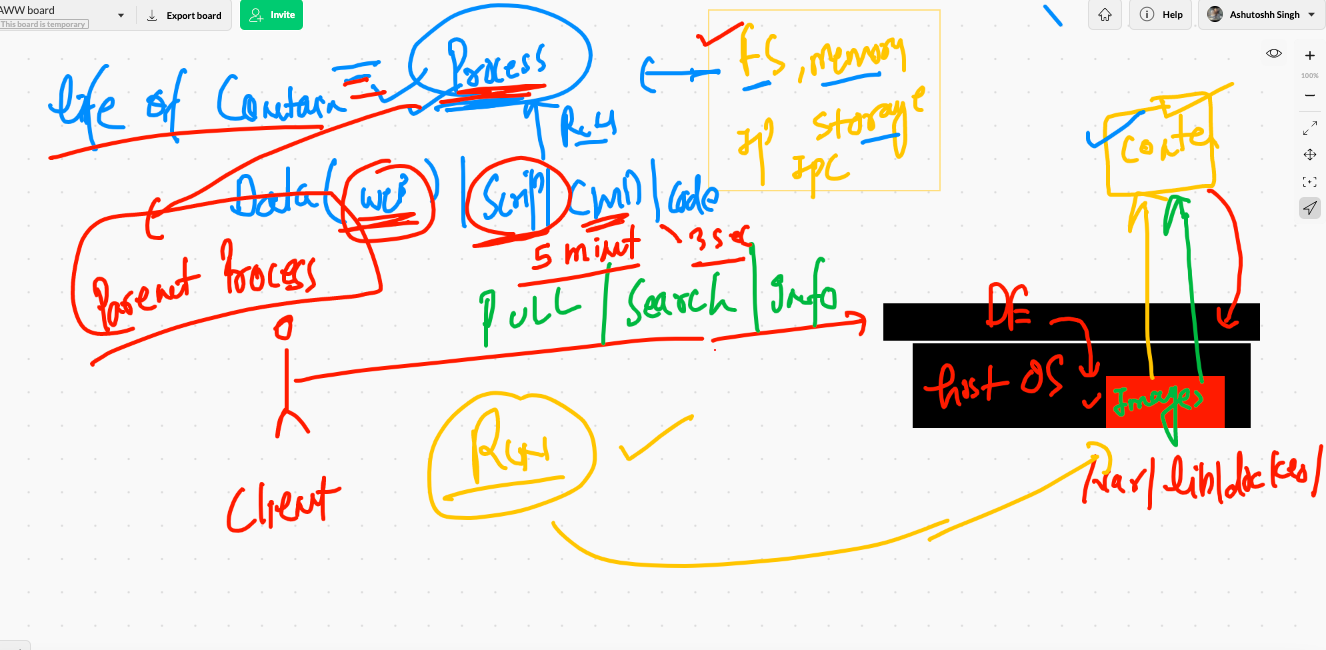 AWW board
This board is temporary
Export board
Invite
Help
Ashutoshh Singh
100%
life of Contain = Process
FS, memory
storage
IP IPC
Run
Data (web) | Script | CMD | code
5 minut 3 sec
Parenet Process
PULL | Search | Info
DE
host OS
Images
Conte
Run
/var/lib/docker/
Client